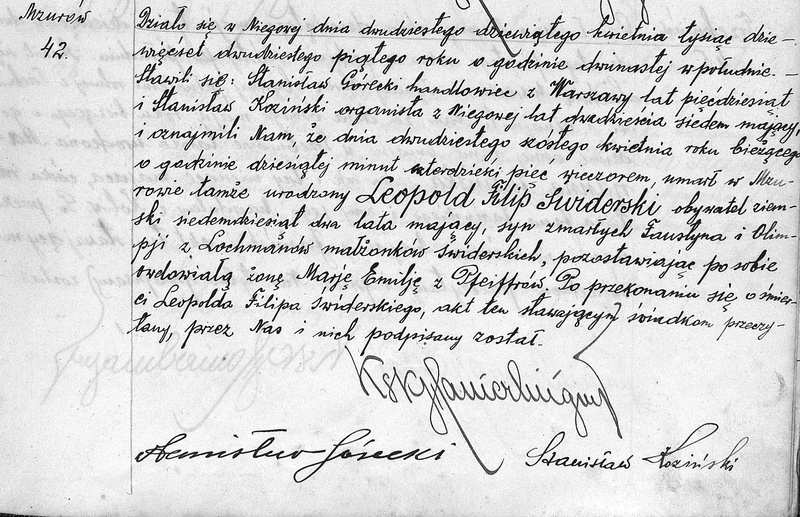 Mzurów
42.
Działo się w Niegowej dnia dwudziestego dziewiątego kwietnia tysiąc dzie-
więćset dwudziestego piątego roku o godzinie dwunastej w południe. –
Stawili się: Stanisław Górecki handlowiec z Warszawy lat pięćdziesiąt
i Stanisław Koziński organista z Niegowej lat dwadzieścia siedem mający,
i oznajmili Nam, że dnia dwudziestego szóstego kwietnia roku bieżącego
o godzinie dziesiątej minut czterdzieści pięć wieczorem, umarł w Mzu-
rowie tamże urodzony Leopold Filip Swiderski, obywatel ziem-
ski siedemdziesiąt dwa lata mający, syn zmarłych Faustyna i Olim-
pji z Lochmanów małżonków Świderskich, pozostawiając po sobie
owdowiałą żonę Marję Emilję z Pfeiffrów. Po przekonaniu się o śmier-
ci Leopolda Filipa Swiderskiego, akt ten stawającym świadkom przeczy-
tany, przez Nas i nich podpisany został.
Stanisław Górecki
Stanisław Koziński